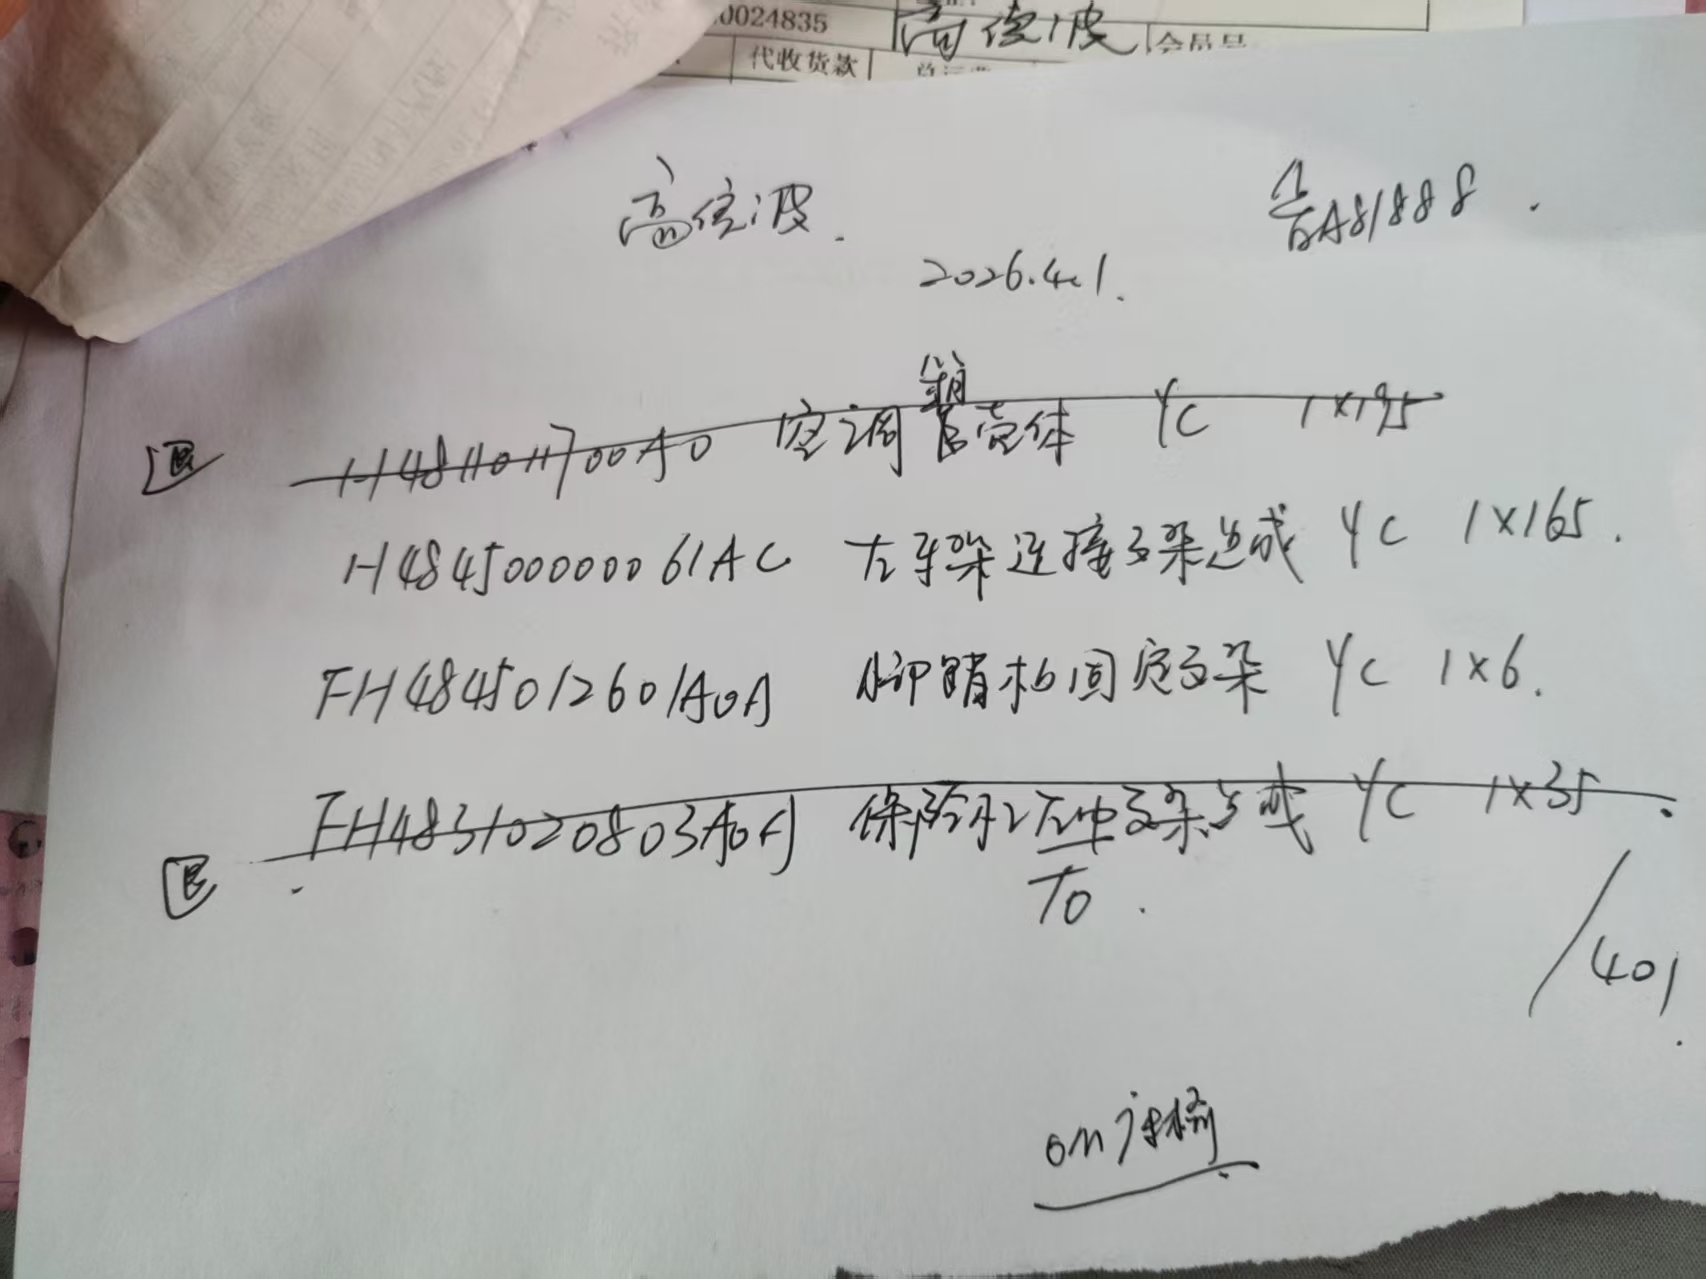 0024835 高德波 会员号
代收货款
高德波.
鲁A81888.
2026.4.1.
箱
H4811011700A0 空调 壳体 YC 1×195
H484500000061AC 左车架连接支架总成 YC 1×165.
FH4845012601A0A 脚踏板固定支架 YC 1×6.
FH4831020803A0A 保险杠左中支架总成 YC 1×35.
T0.
/401.